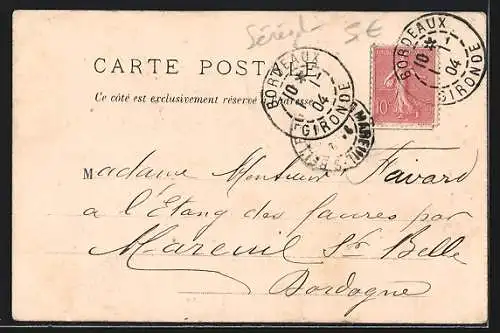 5€
CARTE POSTALE
Ce côté est exclusivement réservé
BORDEAUX
10 * 1
04
GIRONDE
BORDEAUX
10 * 1
04
GIRONDE
10c
Madame Monsieur Favard
a l'Etang des faures par
Mareuil Sr Belle
Dordogne